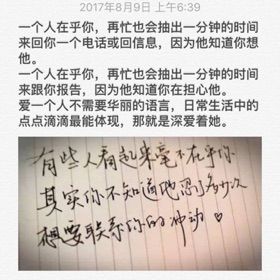 2017年8月9日 上午6:39
一个人在乎你，再忙也会抽出一分钟的时间
来回你一个电话或回信息，因为他知道你想
他。
一个人在乎你，再忙也会抽出一分钟的时间
来跟你报告，因为他知道你在担心他。
爱一个人不需要华丽的语言，日常生活中的
点点滴滴最能体现，那就是深爱着她。
有些人看起来毫不在乎你
其实你不知道他忍了多少次
想要联系你的冲动